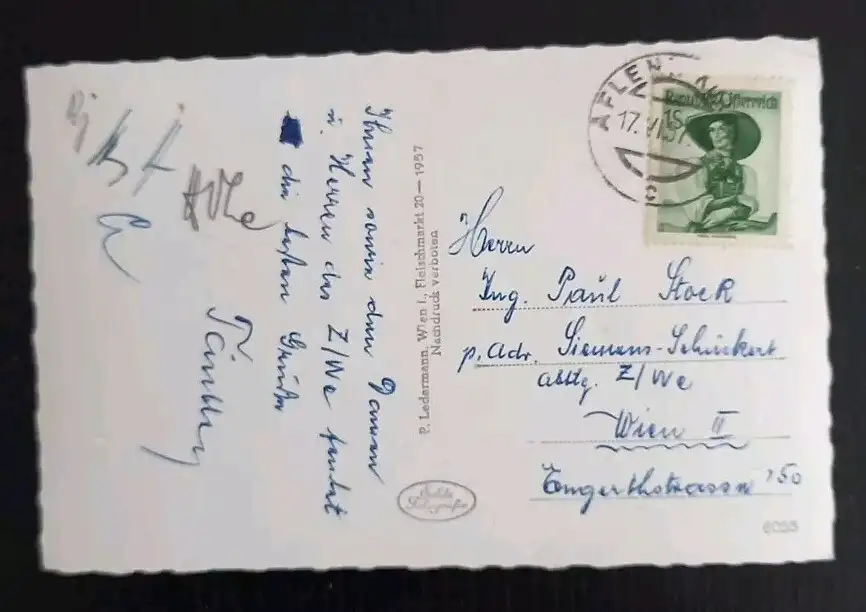 Ihnen sowie den Damen
u. Herren der Z/We sendet
die besten Grüße
P. Ledermann, Wien I., Fleischmarkt 20 — 1957
Nachdruck verboten
AFLENZ
17.VI.57
18
c
Republik Österreich
Herrn
Ing. Paul Stock
p. Adr. Siemens-Schuckert
abtlg. Z/We
Wien II
Engerthstrasse 150
Echte
Fotografie
6055